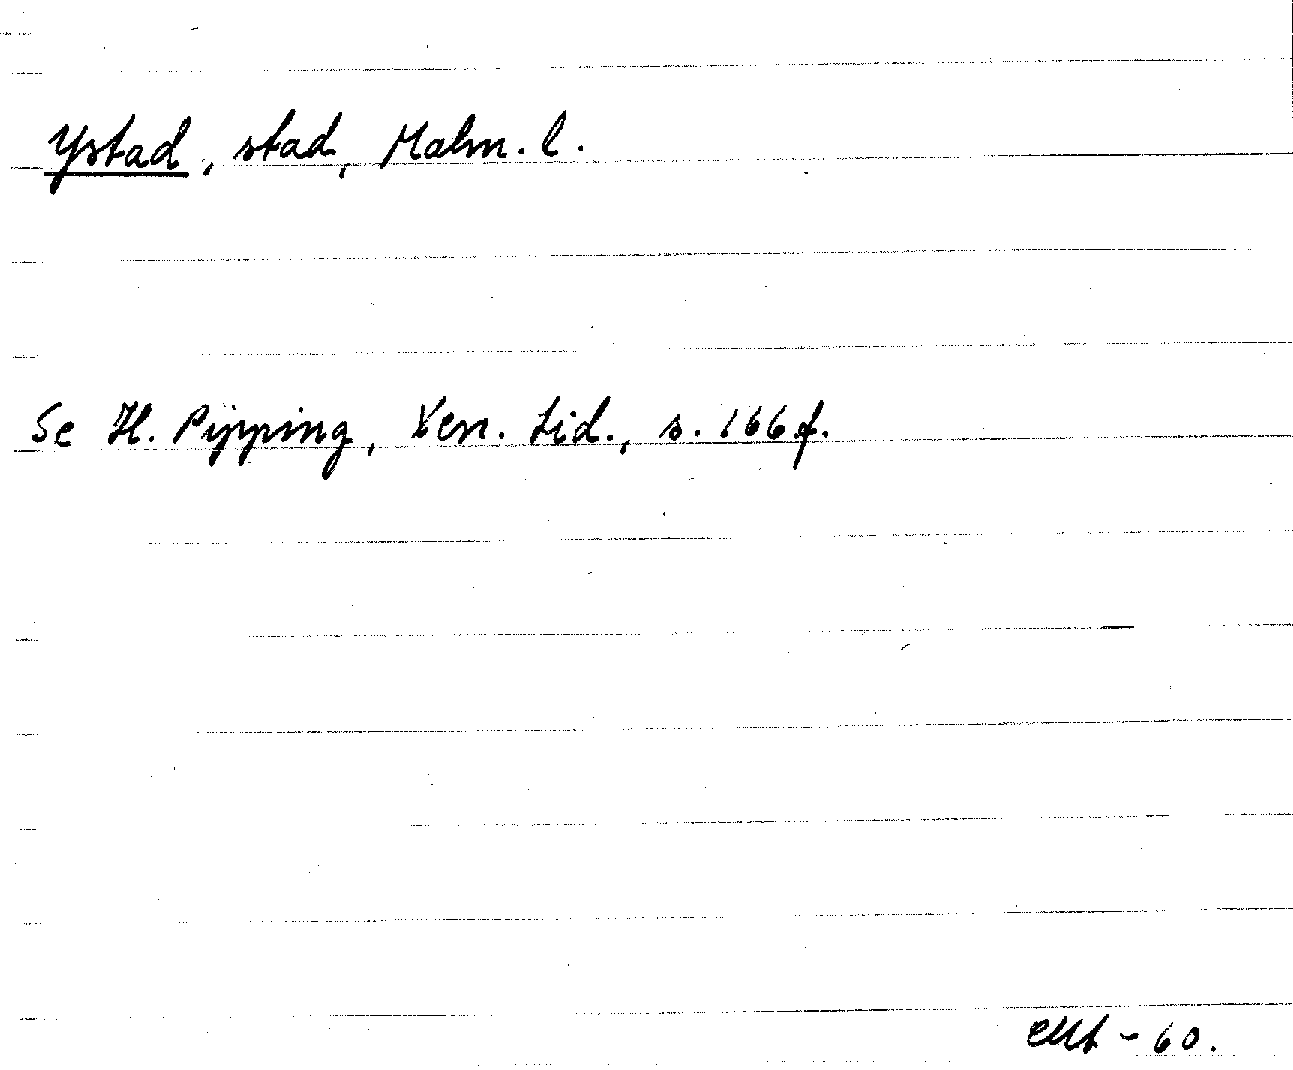 Ystad, stad, Malm. l.
Se H. Pipping, Xen. Lid., s. 166 f.
-60.